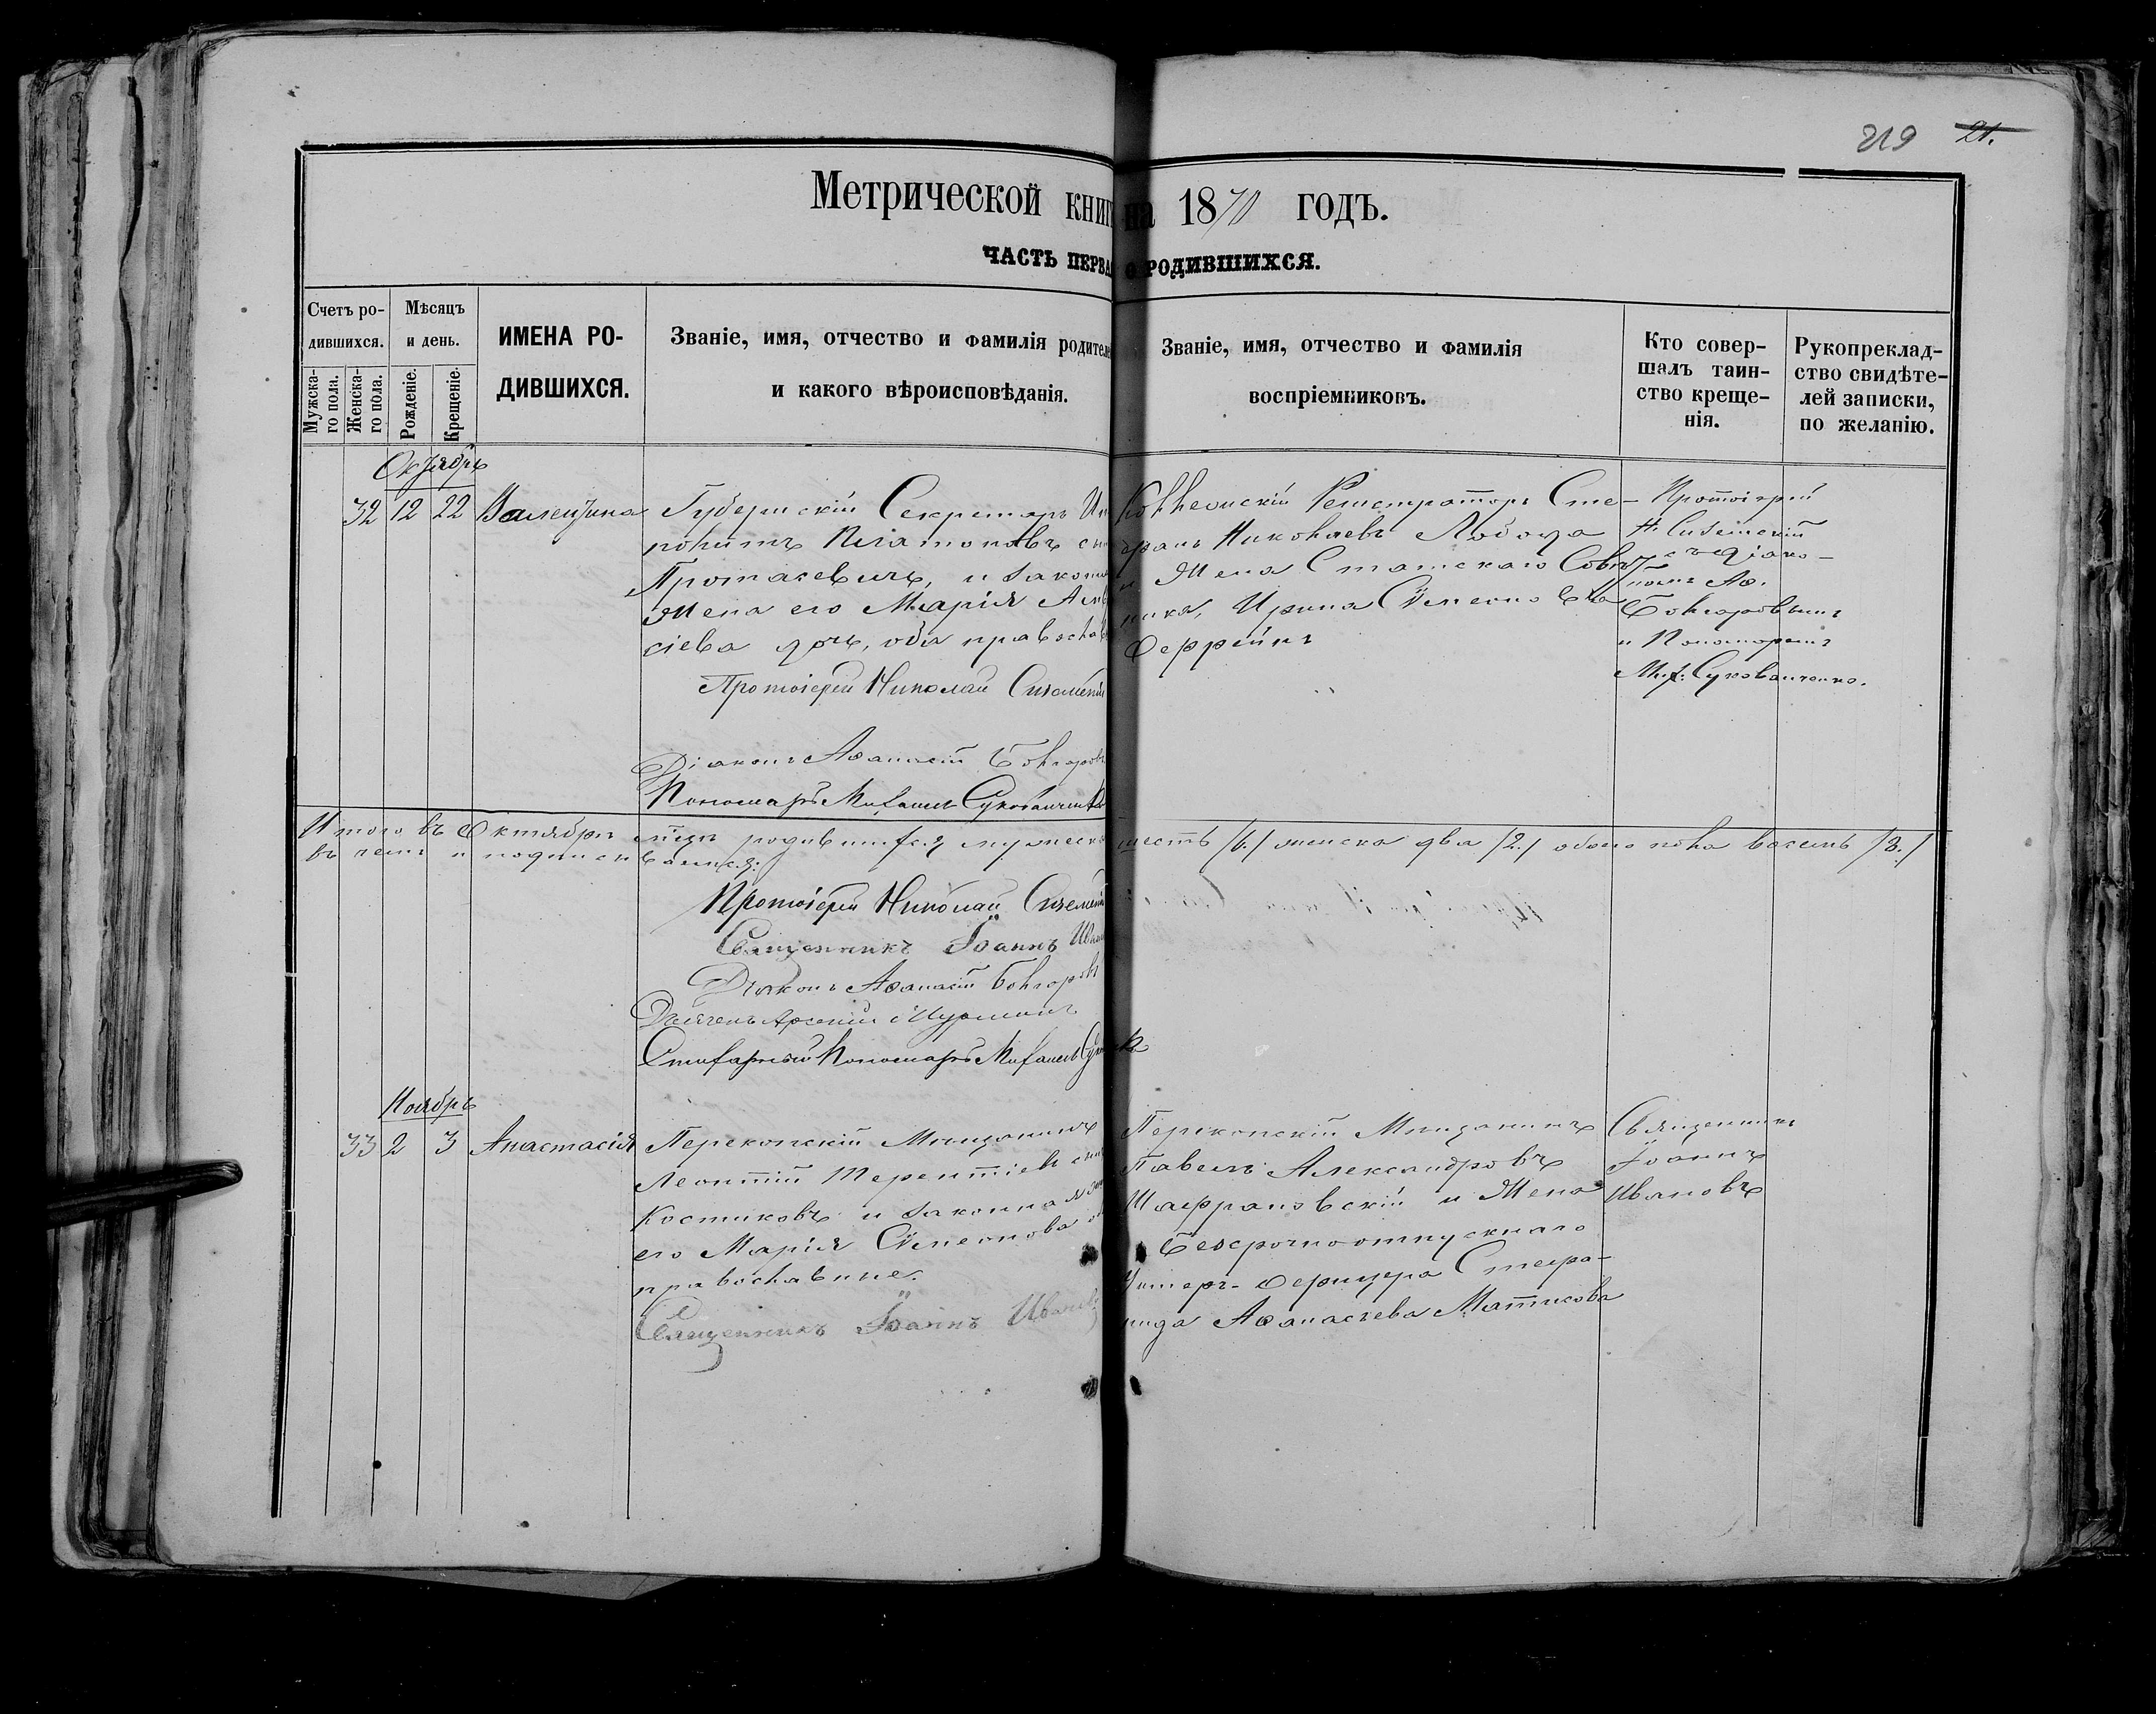 219 21.
Метрической книг на 1870 годъ.
ЧАСТЬ ПЕРВА О РОДИВШИХСЯ.
Счетъ ро-
дившихся.
Мужска-
го пола.
Женска-
го пола.
Мѣсяцъ
и день.
Рожденіе.
Крещеніе.
ИМЕНА РО-
ДИВШИХСЯ.
Званіе, имя, отчество и фамилія родителе
и какого вѣроисповѣданія.
Званіе, имя, отчество и фамилія
воспріемниковъ.
Кто совер-
шалъ таин-
ство креще-
нія.
Рукопреклад-
ство свидѣте-
лей записки,
по желанію.
Октябрь
32 12 22 Валентина
Губернскій Секретарь
Платоновъ
Протасевичъ, и законна
Жена его Марія
сіева дочь, оба православ
Протоіерей Николай
Діаконъ Аѳанасій Болгаровъ
Пономарь Михаилъ
Коллежскій Регистраторъ Сте-
фанъ Николаевъ Лобода
и Жена Статскаго Совѣт
ника, Ирина Сѵмеонова
Деффейнъ
Протоіерей
Н.
съ Діако-
номъ Аѳ.
Болгаровымъ
и Пономаремъ
Мих.
Итого въ Октябрѣ мцѣ родившихся мужеска шесть /6./ женска два /2./ обоего пола восемь /8./
въ чемъ и подписываемся:
Протоіерей Николай
Священникъ Іоаннъ Ивано
Діаконъ Аѳанасій Болгаровъ
Арсеній
Стихарный Пономарь Михаилъ
Ноябрь
33 2 3 Анастасія
Перекопскій Мѣщанинъ
Леонтій Терентіевъ сынъ
Костиковъ и законная жена
его Марія Сѵмеонова
православные.
Священникъ Іоаннъ Ивановъ
Перекопскій Мѣщанинъ
Павелъ Александровъ
Шафрановскій и Жена
Безсрочноотпускнаго
Унтеръ-Офицера Стефа-
нида Аѳанасіева Матисова
Священникъ
Іоаннъ
Ивановъ